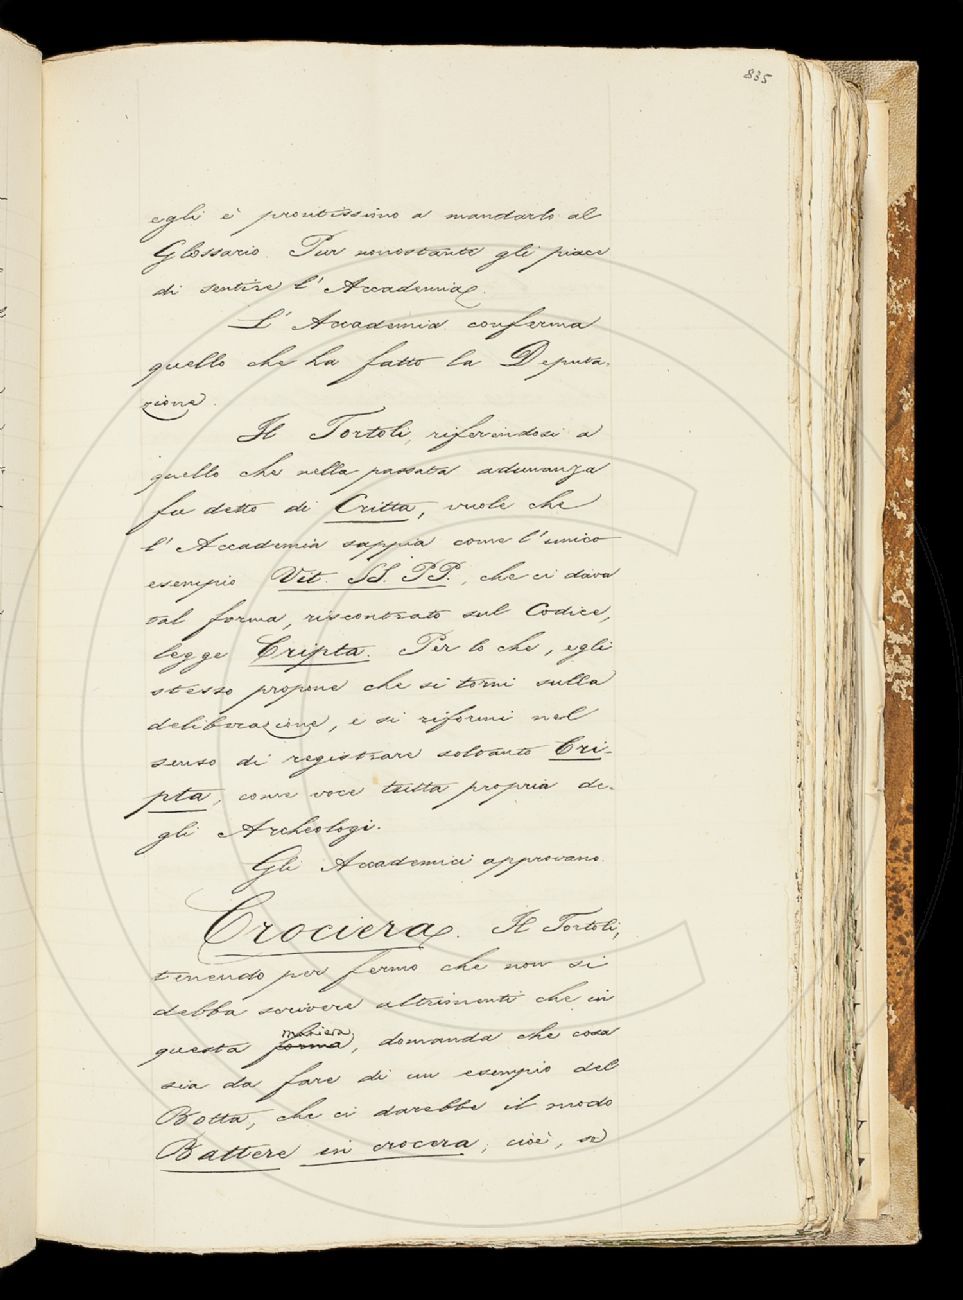 835
egli è prontissimo a mandarlo al
Glossario. Pur nonostante gli piace
di sentire l'Accademia.
L'Accademia conferma
quello che ha fatto la Deputa-
zione.
Il Tortoli, riferendosi a
quello che nella passata adunanza
fu detto di Critta, vuole che
l'Accademia sappia come l'unico
esempio Vit. SS. PP., che ci dava
tal forma, riscontrato sul Codice,
legge Cripta. Per lo che, egli
stesso propone che si torni sulla
deliberazione, e si riformi nel
senso di registrare soltanto Cri-
pta, come voce tutta propria de-
gli Archeologi.
Gli Accademici approvano.
Crociera. Il Tortoli,
tenendo per fermo che non si
debba scrivere altrimenti che in
maniera
questa forma, domanda che cosa
sia da fare di un esempio del
Botta, che ci darebbe il modo
Battere in crocera; cioè, se